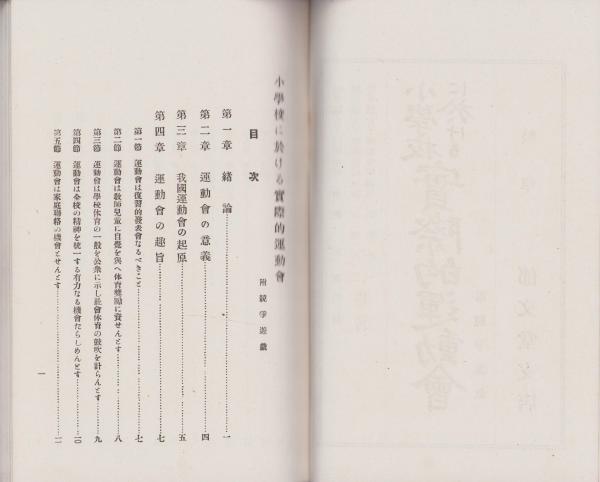 小學校に於ける實際的運動會
附競爭遊戲
目次
第一章 緒論……一
第二章 運動會の意義……四
第三章 我國運動會の起原……五
第四章 運動會の趣旨……七
第一節 運動會は復習的發表會なるべきこと……七
第二節 運動會は敎師兒童に自覺を與へ体育奬勵に資せんとす……八
第三節 運動會は學校体育の一般を公衆に示し社會体育の鼓吹を計らんとす……九
第四節 運動會は全校の精神を統一する有力なる機會たらしめんとす……一〇
第五節 運動會は家庭聯絡の機會とせんとす……一一
一